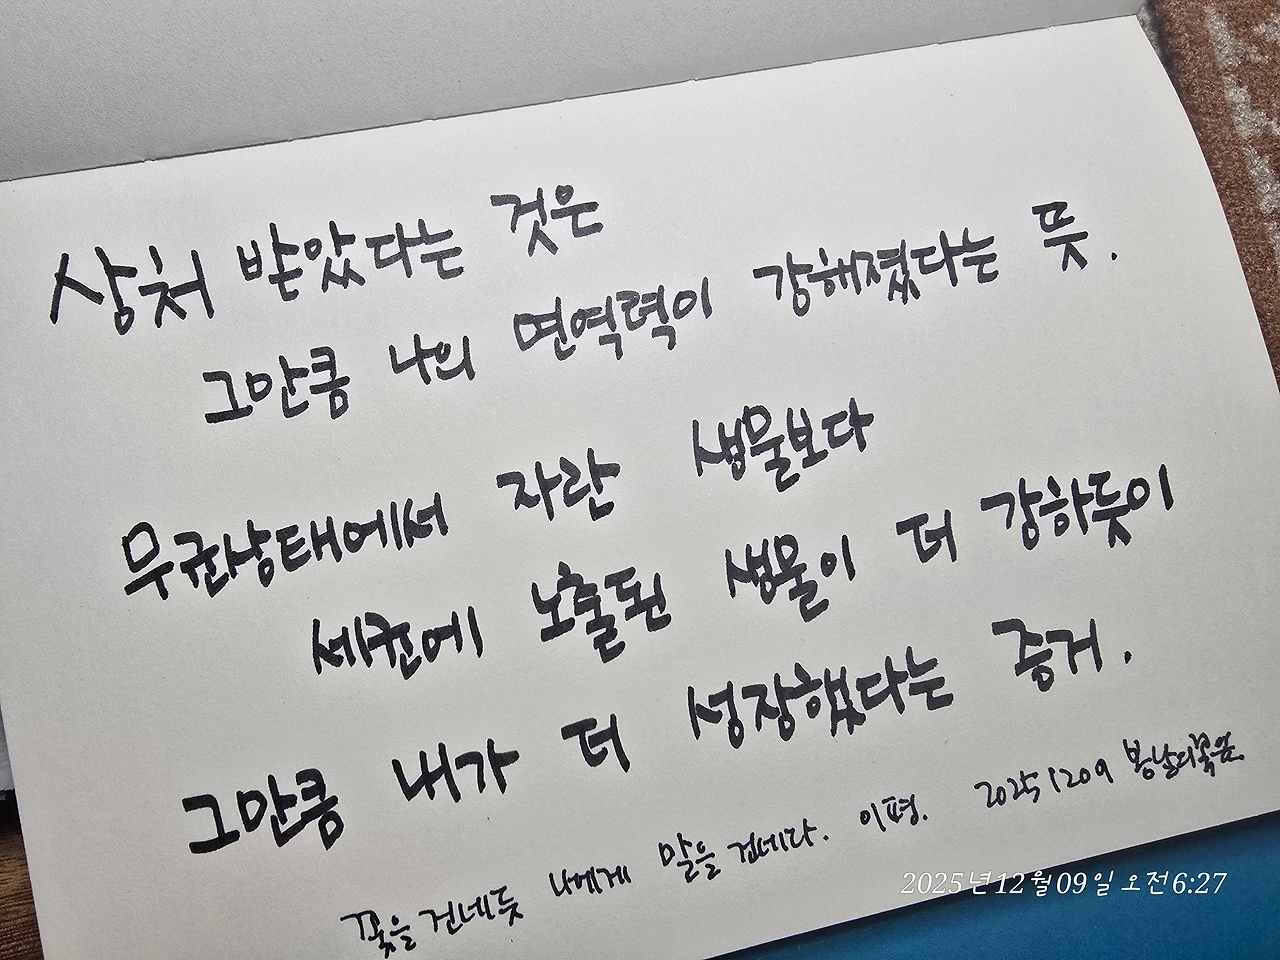 상처 받았다는 것은
그만큼 나의 면역력이 강해졌다는 뜻.
무균상태에서 자란 생물보다
세균에 노출된 생물이 더 강하듯이
그만큼 내가 더 성장했다는 증거.
꽃을 건네듯 나에게 말을 건네다. 이평. 20251209 봉남의꽃잎
2025년12월09일 오전6:27